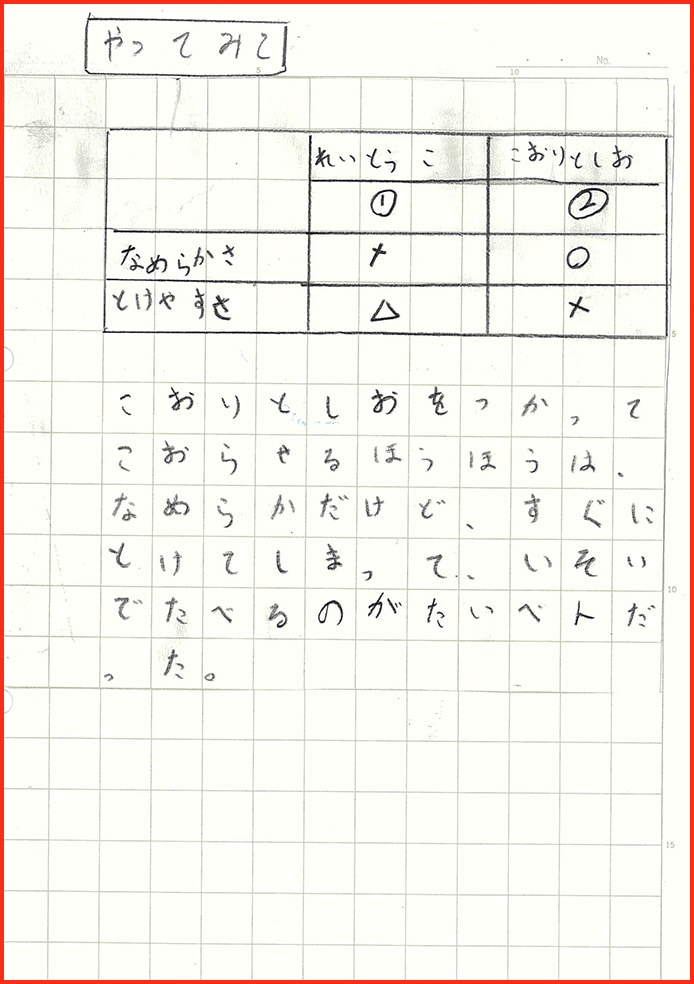 やってみて
No.
5
10
れいとうこ こおりとしお
① ②
なめらかさ × ○
とけやすさ △ ×
5
こおりとしおをつかって
こおらせるほうほうは、
なめらかだけど、すぐに
とけてしまって、いそい
でたべるのがたいへんだ
った。
10
15